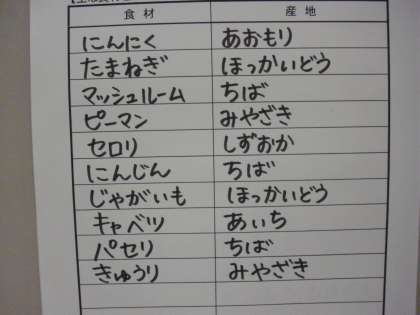 食材 産地
にんにく あおもり
たまねぎ ほっかいどう
マッシュルーム ちば
ピーマン みやざき
セロリ しずおか
にんじん ちば
じゃがいも ほっかいどう
キャベツ あいち
パセリ ちば
きゅうり みやざき